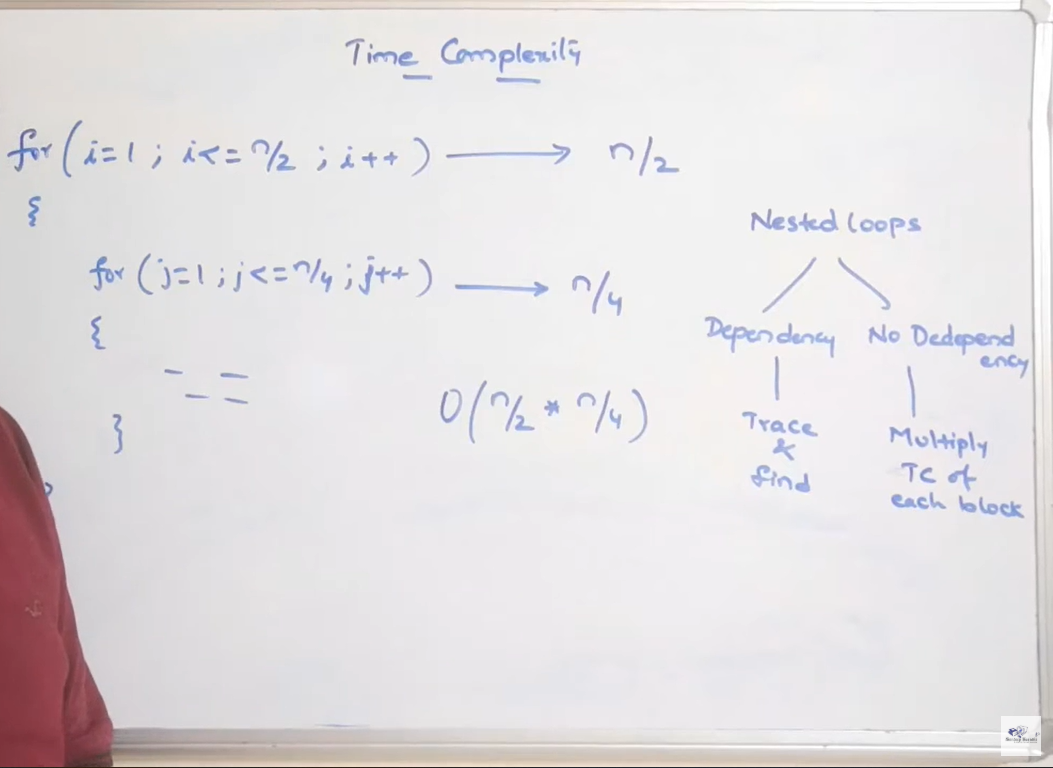 Time Complexity
for (i=1 ; i<=n/2 ; i++) → n/2
{
for (j=1 ; j<=n/4 ; j++) → n/4
{
}
O(n/2 * n/4)
Nested loops
Dependency
Trace
&
find
No Dedepend
ency
Multiply
TC of
each block